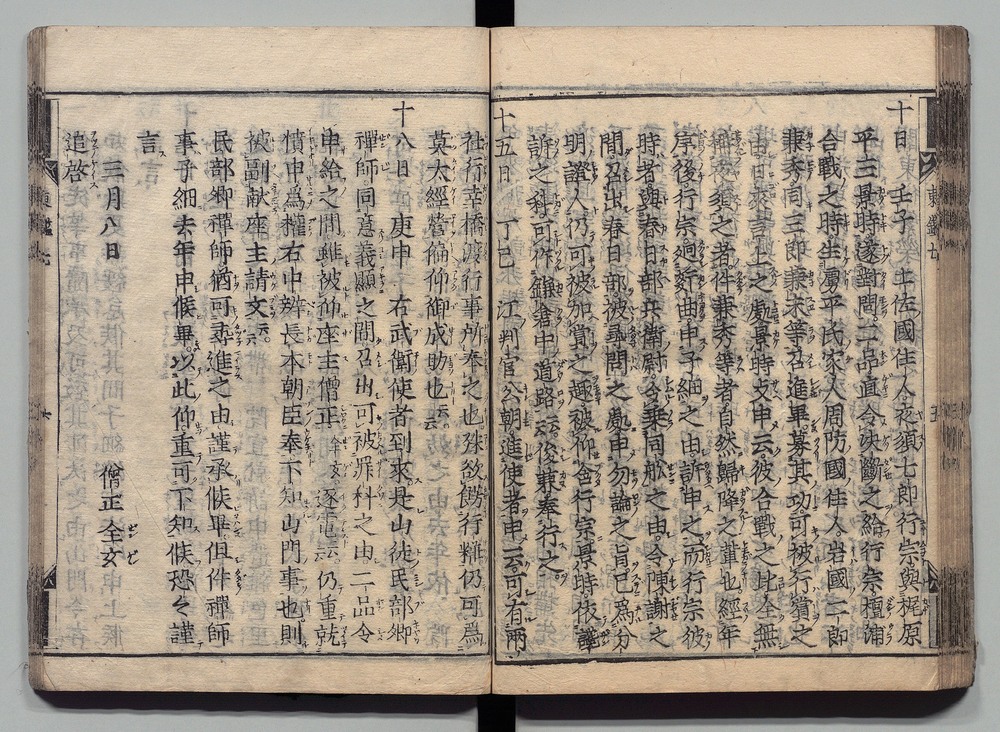 十日　壬子　土佐國住人夜須七郎行宗與梶原
平三景時遂對問二品直令決斷之給行宗檀浦
合戰之時生虜平氏家人周防國住人岩國二郎
兼秀同三郎兼末等召進畢募其功可被行賞之
由日來言上之處景時支申云彼合戰之比全無
稱夜須之者件兼秀等者自然歸降之輩也經年
序後行宗廻近曲申子細之由訴申之而行宗彼
時者與春日部兵衛尉令乗同舩之由令陳謝之
間召出春日部被尋問之處申勿論之旨已為分
明證人仍可被加賞之趣被仰含行宗景時依讒
訴之科可作鎌倉中道路云後兼奉行之
十五日　丁巳　江判官公朝進使者申云可有兩
社行幸橋渡行事所奉之也殊欲餝行粧仍可為
莫太經營偏仰御成助也云云
十八日　庚申　右武衛使者到來是山徒民部卿
禪師同意義顯之間召出可被罪科之由二品令
申給之間雖被仰座主僧正全玄逐電云云仍重就
憤申為權右中辨定長本朝臣奉下知山門事也則
被副献座主請文云云
民部卿禪師猶可尋進之由謹承候畢但件禪師
事子細去年申候畢以此仰重可下知候恐々謹
言
三月八日　僧正全玄
追啓
東鑑七
五
東鑑七
六